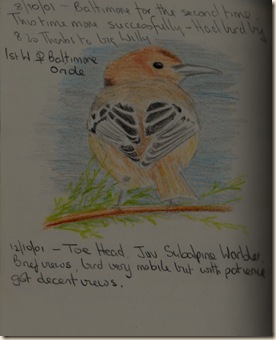 8/10/01 - Baltimore for the second time
This time more successfully - Had bird by
8 20 Thanks to big Willy!
1st W ♀ Baltimore
Oriole
12/10/01 - Toe Head, Juv Subalpine Warbler,
Brief views, bird very mobile but with patience
got decent views.